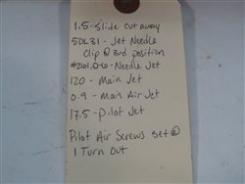 1.5 - Slide cut away
5DL31 - Jet Needle
Clip @ 3rd position
- Needle Jet
120 - Main Jet
0.9 - Main Air Jet
17.5 - Pilot Jet
Pilot Air Screws set @
1 Turn Out